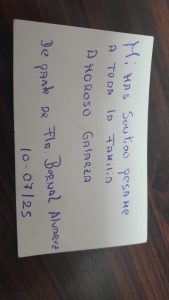 Mi MAS SENTIDO PESAME
A TODA LA FAMILIA
AMOROSO GALARZA
De PARTE DE FlA Bernal Alvarez
10-07/25